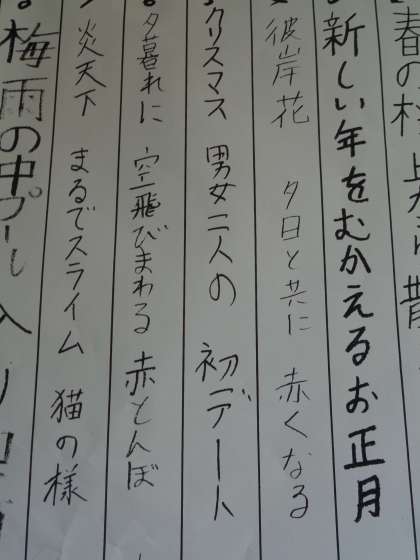 春の
新しい年をむかえるお正月
彼岸花 夕日と共に 赤くなる
クリスマス 男女二人の 初デート
夕暮れに 空飛びまわる 赤とんぼ
炎天下 まるでスライム 猫の様
梅雨の中プール入り